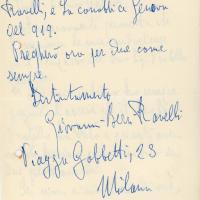 Ravelli, e La conobbi a Genova
nel 919.
Pregherò ora per due come
sempre.
Distintamente
Giovanni Bern Ravelli
Viaggia Gobbetti, 23
Milano